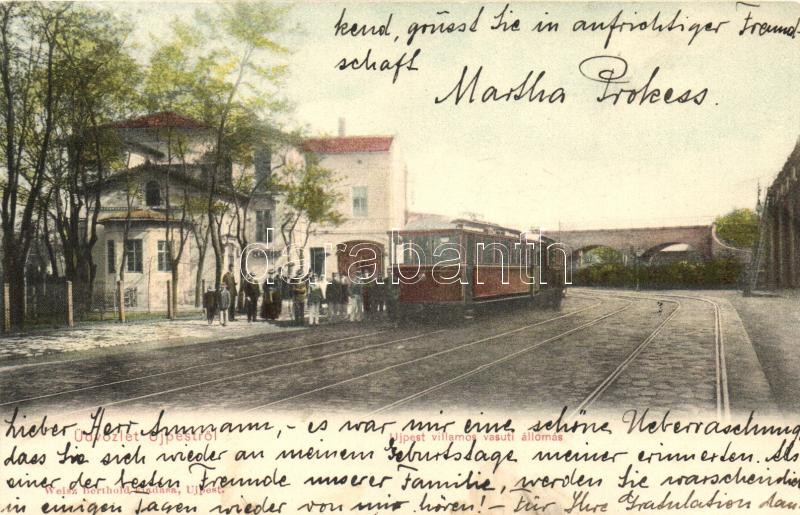 kend, grüsst Sie in aufrichtiger Freund-
schaft
Martha Prokess.
darabanth
Lieber Herr Ammann, - es war mir eine schöne Ueberraschung
Üdvözlet Ujpestről
Ujpest villamos vasuti állomás
dass Sie sich wieder an meinem Geburtstage meiner erinnerten. Als
einer der besten Freunde unserer Familie, werden Sie warscheindlich
Weisz Berthold kiadása, Ujpest.
in einigen Tagen wieder von mir hören! - Für Ihre Gratulation dan-